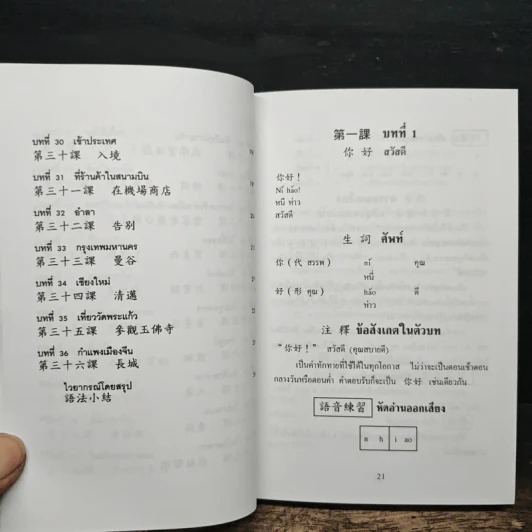 บทที่ 30 เข้าประเทศ
第三十課 入境
บทที่ 31 ที่ร้านค้าในสนามบิน
第三十一課 在機場商店
บทที่ 32 อำลา
第三十二課 告別
บทที่ 33 กรุงเทพมหานคร
第三十三課 曼谷
บทที่ 34 เชียงใหม่
第三十四課 清邁
บทที่ 35 เที่ยววัดพระแก้ว
第三十五課 參觀玉佛寺
บทที่ 36 กำแพงเมืองจีน
第三十六課 長城
ไวยากรณ์โดยสรุป
語法小結
第一課 บทที่ 1
你好 สวัสดี
你好！
Nǐ hǎo!
หนี ห่าว
สวัสดี
生詞 ศัพท์
你 (代 สรรพ) nǐ คุณ
หนี่
好 (形 คุณ) hǎo ดี
ห่าว
注釋 ข้อสังเกตในตัวบท
"你好！" สวัสดี (คุณสบายดี)
เป็นคำทักทายที่ใช้ได้ในทุกโอกาส ไม่ว่าจะเป็นตอนเช้าตอน
กลางวันหรือตอนค่ำ คำตอบรับก็จะเป็น 你好 เช่นเดียวกัน
語音練習 หัดอ่านออกเสียง
n h i ao
21